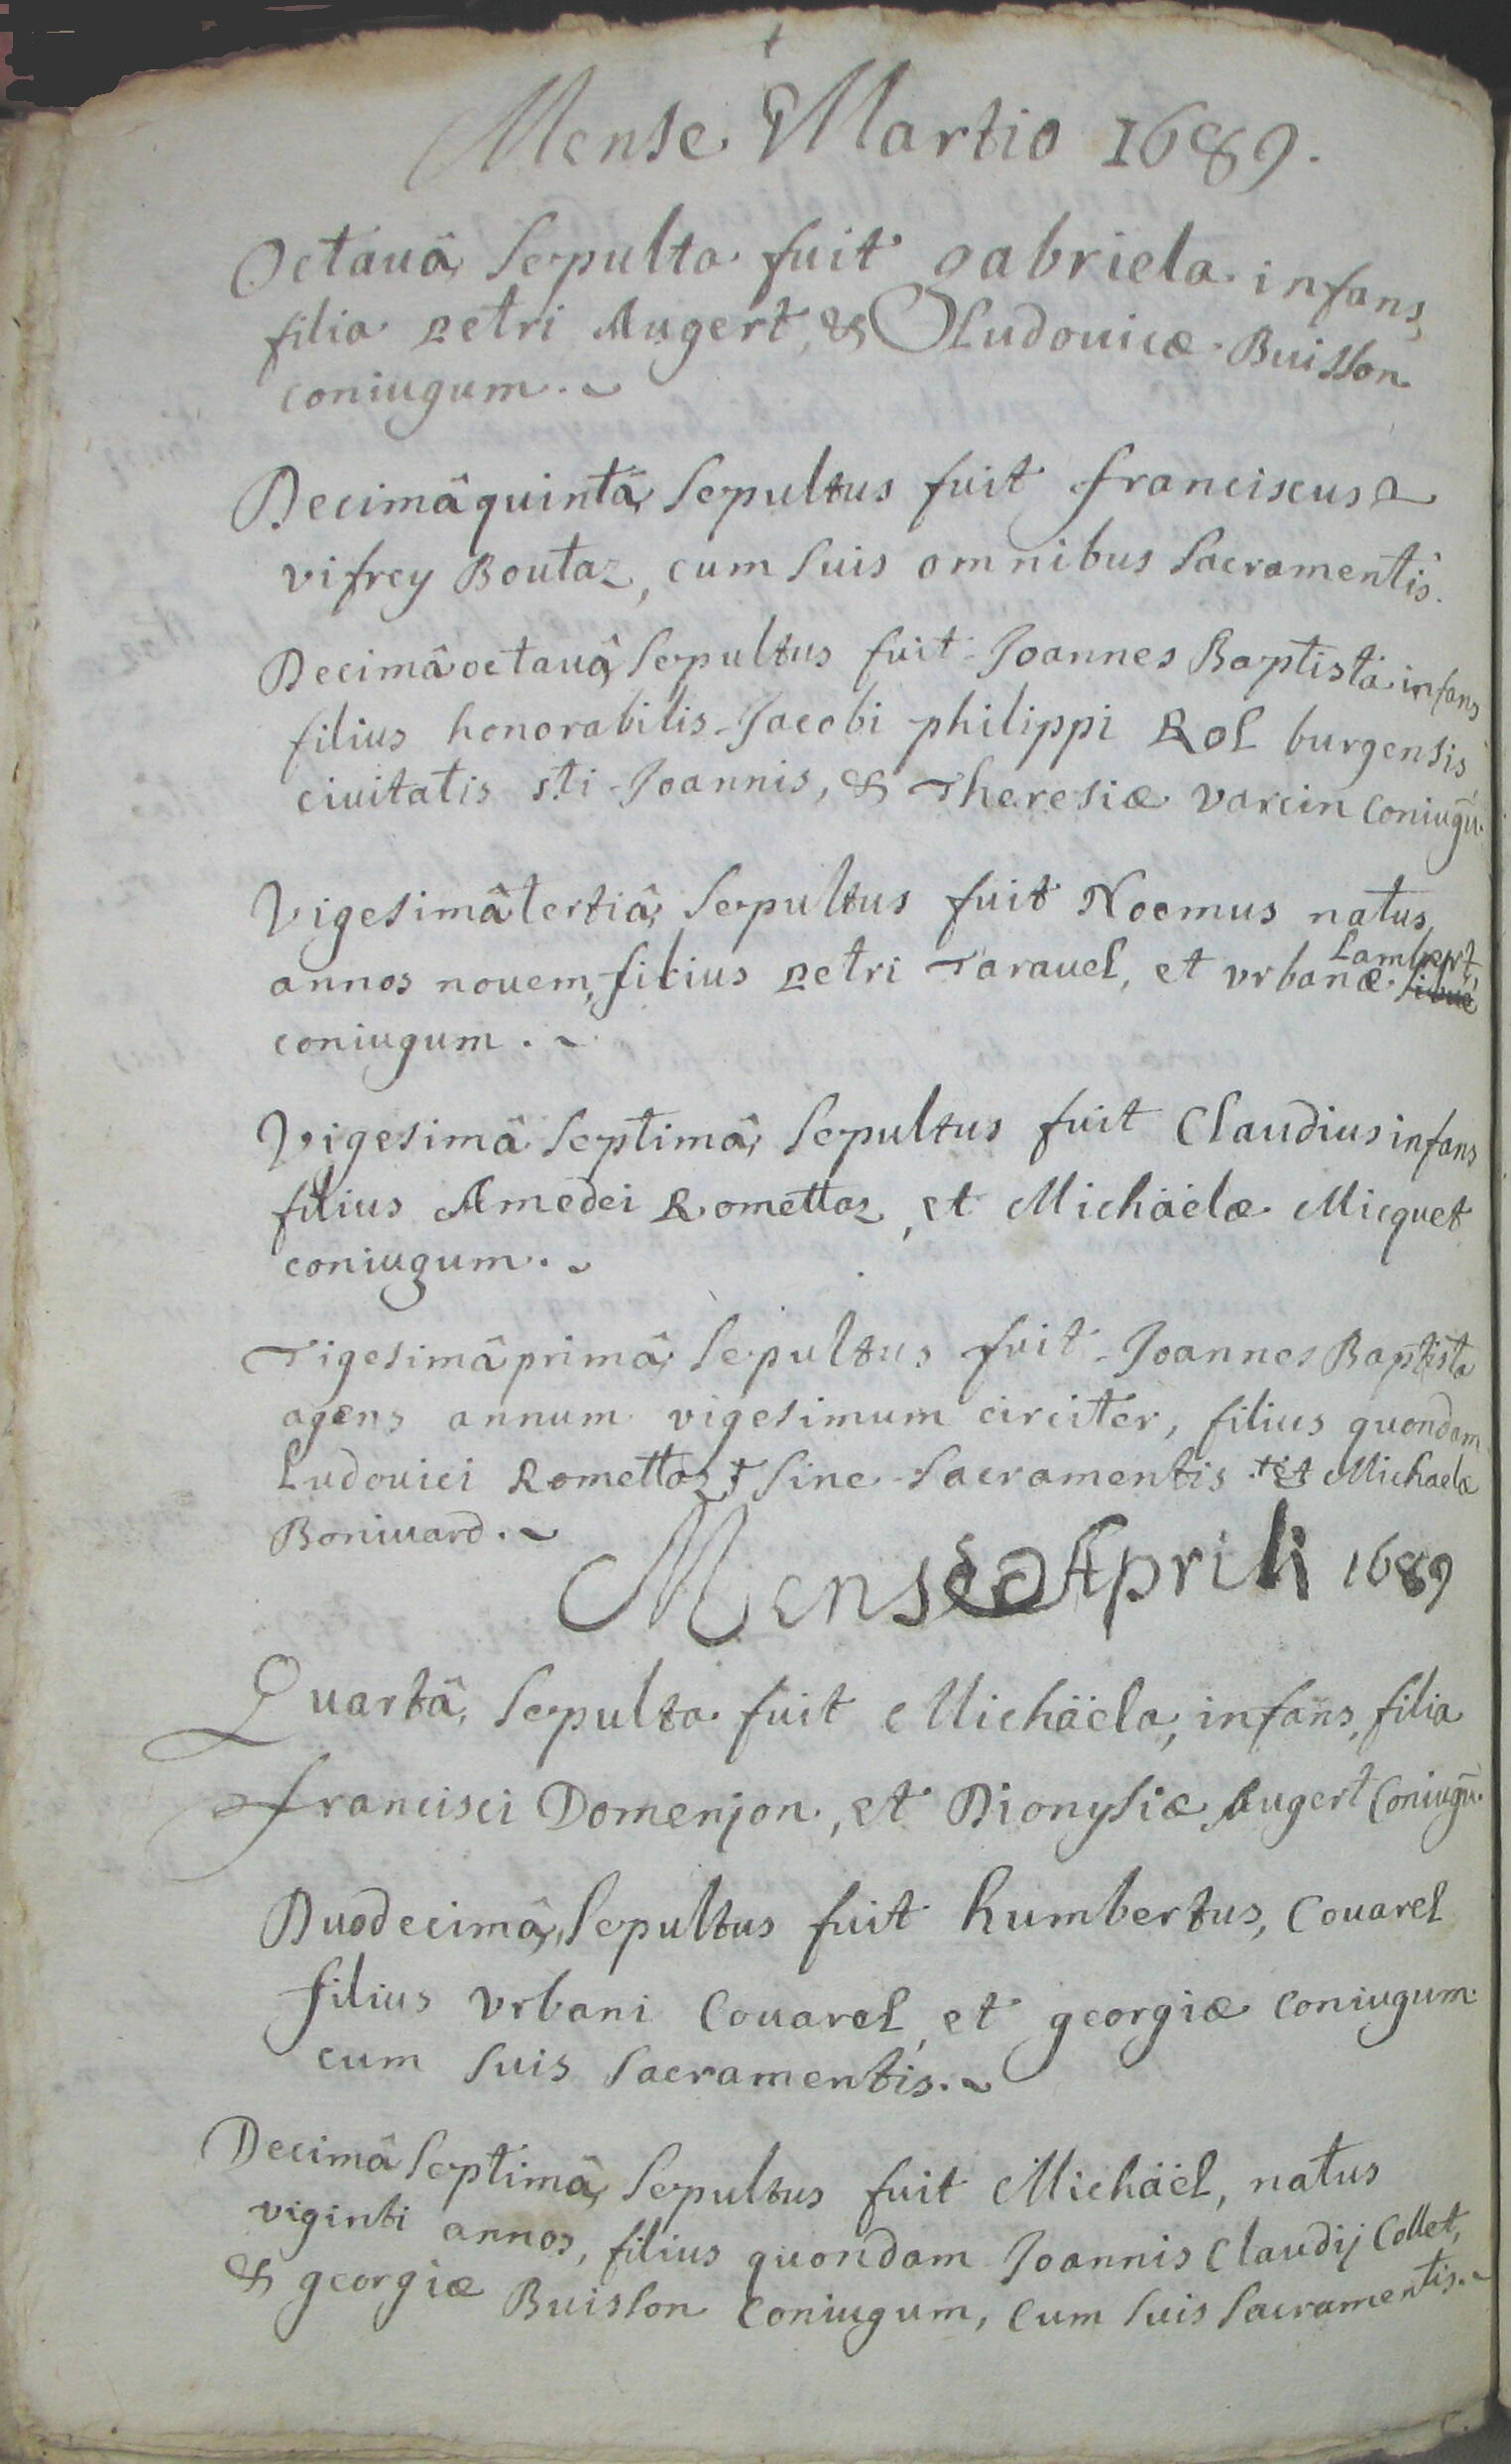 Mense Martio 1689.
Octauâ, sepulta fuit gabriela infans,
filia petri Augert, & Ludouicæ Buisson
coniugum.~
Decimâ quintâ, sepultus fuit franciscus
vifrey Boutaz, cum suis omnibus sacramentis.
Decimâ octauâ, sepultus fuit Joannes Baptista infans
filius honorabilis Jacobi philippi Rol burgensis
ciuitatis sti Joannis, & Theresiæ varcin coniugū.
Vigesimâ tertiâ, sepultus fuit Noemus natus
annos nouem, filius petri Tarauel, et vrbanæ Lambert
coniugum.~
Vigesimâ septimâ, sepultus fuit Claudius infans
filius Amedei Romettaz, et Michäelæ Micquet
coniugum.~
Tigesimâ primâ, sepultus fuit Joannes Baptista
agens annum vigesimum circiter, filius quondam
Ludouici Romettaz + sine sacramentis. + et Michaelæ
Boniuard.~
Mense Aprili 1689
Quartâ, sepulta fuit Michäela, infans, filia
francisci Domenjon, et Dionysiæ Augert Coniugū.
Duodecimâ, sepultus fuit humbertus, Couarel
filius vrbani Couarel, et georgiæ coniugum
cum suis sacramentis.~
Decimâ septimâ, sepultus fuit Michäel, natus
viginti annos, filius quondam Joannis Claudij Collet,
& georgiæ Buisson Coniugum, cum suis sacramentis.~